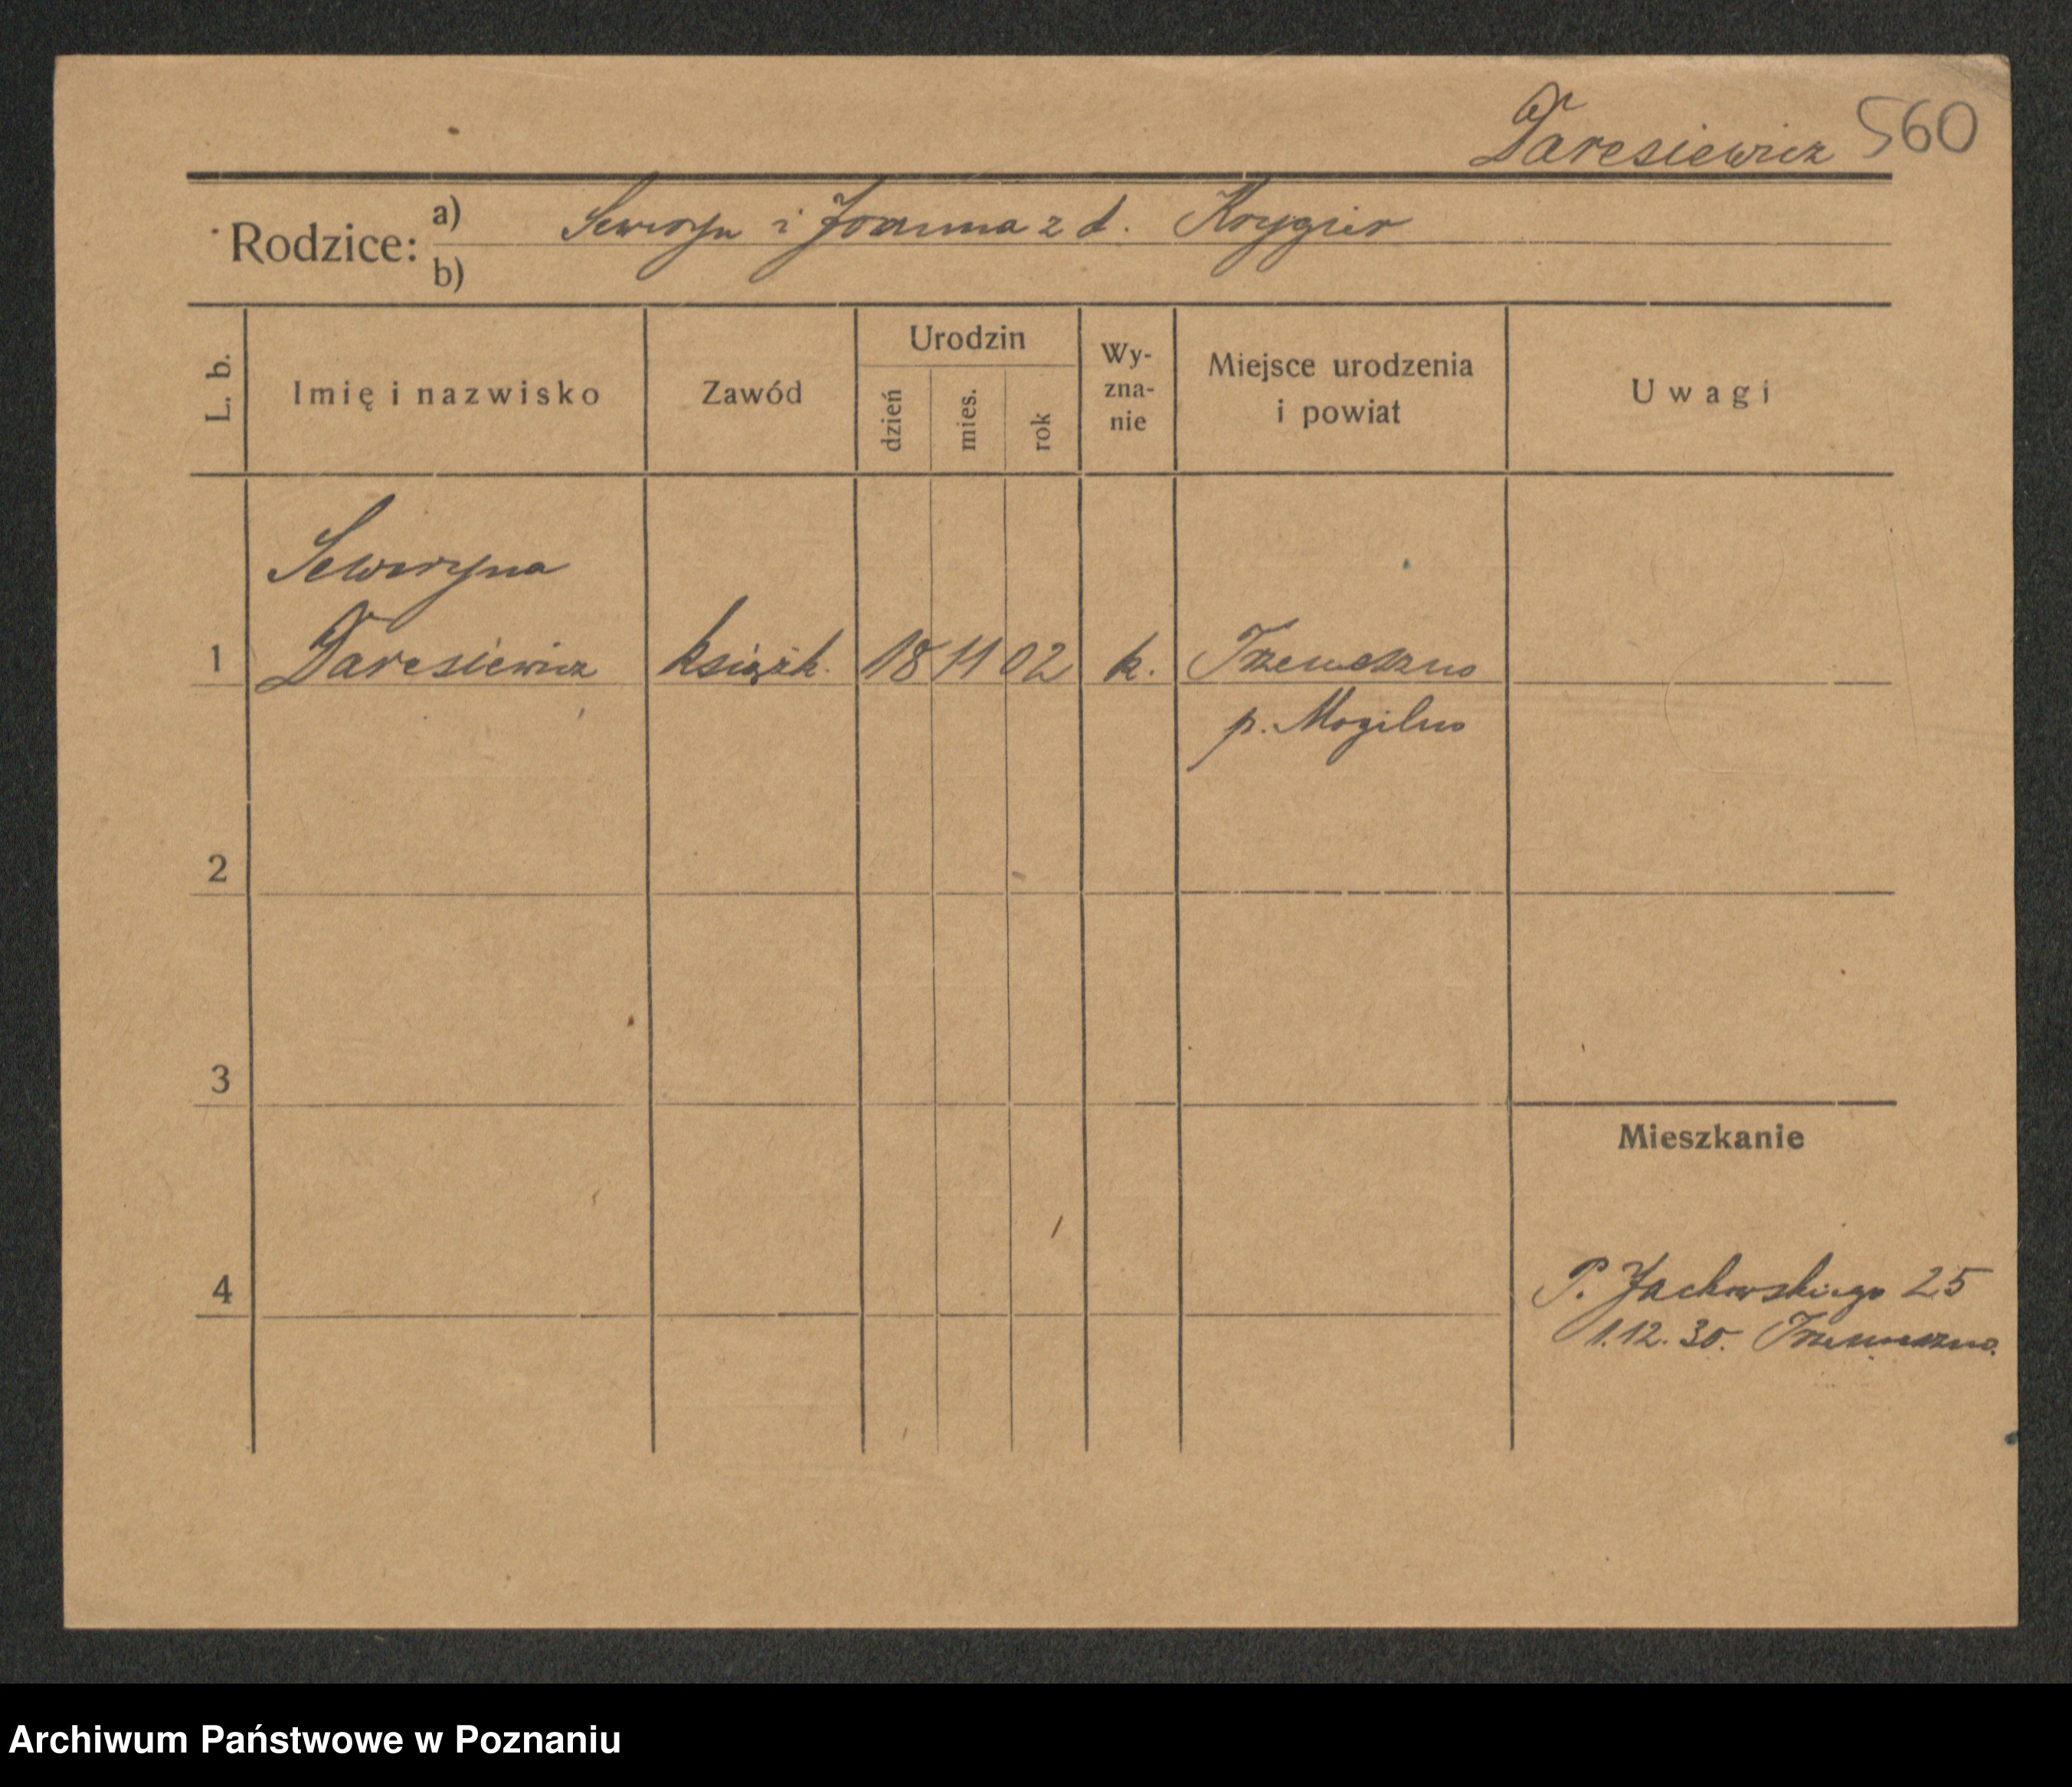 Daresiewicz 560
Rodzice: a) Seweryn i Joanna z d. Krygier
b)
L. b. Imię i nazwisko Zawód Urodzin dzień mies. rok Wy-zna-nie Miejsce urodzenia i powiat Uwagi
Seweryna
1 Daresiewicz książk. 18 11 02 k. Trzemeszno
p. Mogilno
2
3
Mieszkanie
4 P. Jackowskiego 25
1.12.30. Trzemeszno.
Archiwum Państwowe w Poznaniu